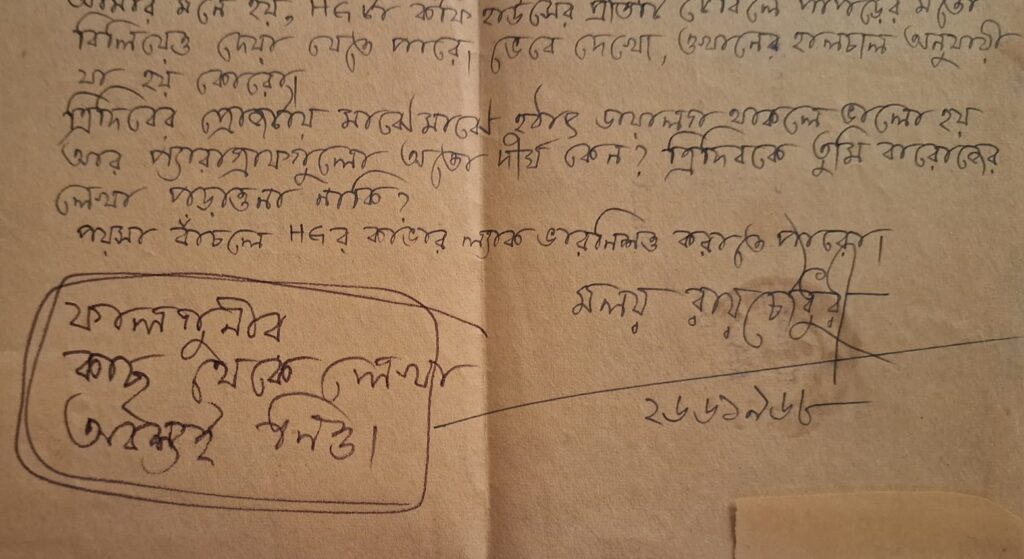 আমার মনে হয়, HGটা কফি হাউসের প্রতিটি টেবিলে পাঁপড়ের মতো
বিলিয়েও দেয়া যেতে পারে। ভেবে দেখো, ওখানের হালচাল অনুযায়ী
যা হয় কোরো।
ত্রিদিবের প্রোজটায় মাঝেমাঝে হঠাৎ ডায়ালগ থাকলে ভালো হয়
আর প্যারাগ্রাফগুলো অতো দীর্ঘ কেন? ত্রিদিবকে তুমি বারোজের
লেখা পড়াওনা নাকি?
পয়সা বাঁচলে HGর কাভার ল্যাক ভারনিশও করাতে পারো।
মলয় রায়চৌধুরী
ফালগুনীর
কাছ থেকে লেখা
অবশ্যই নিও।